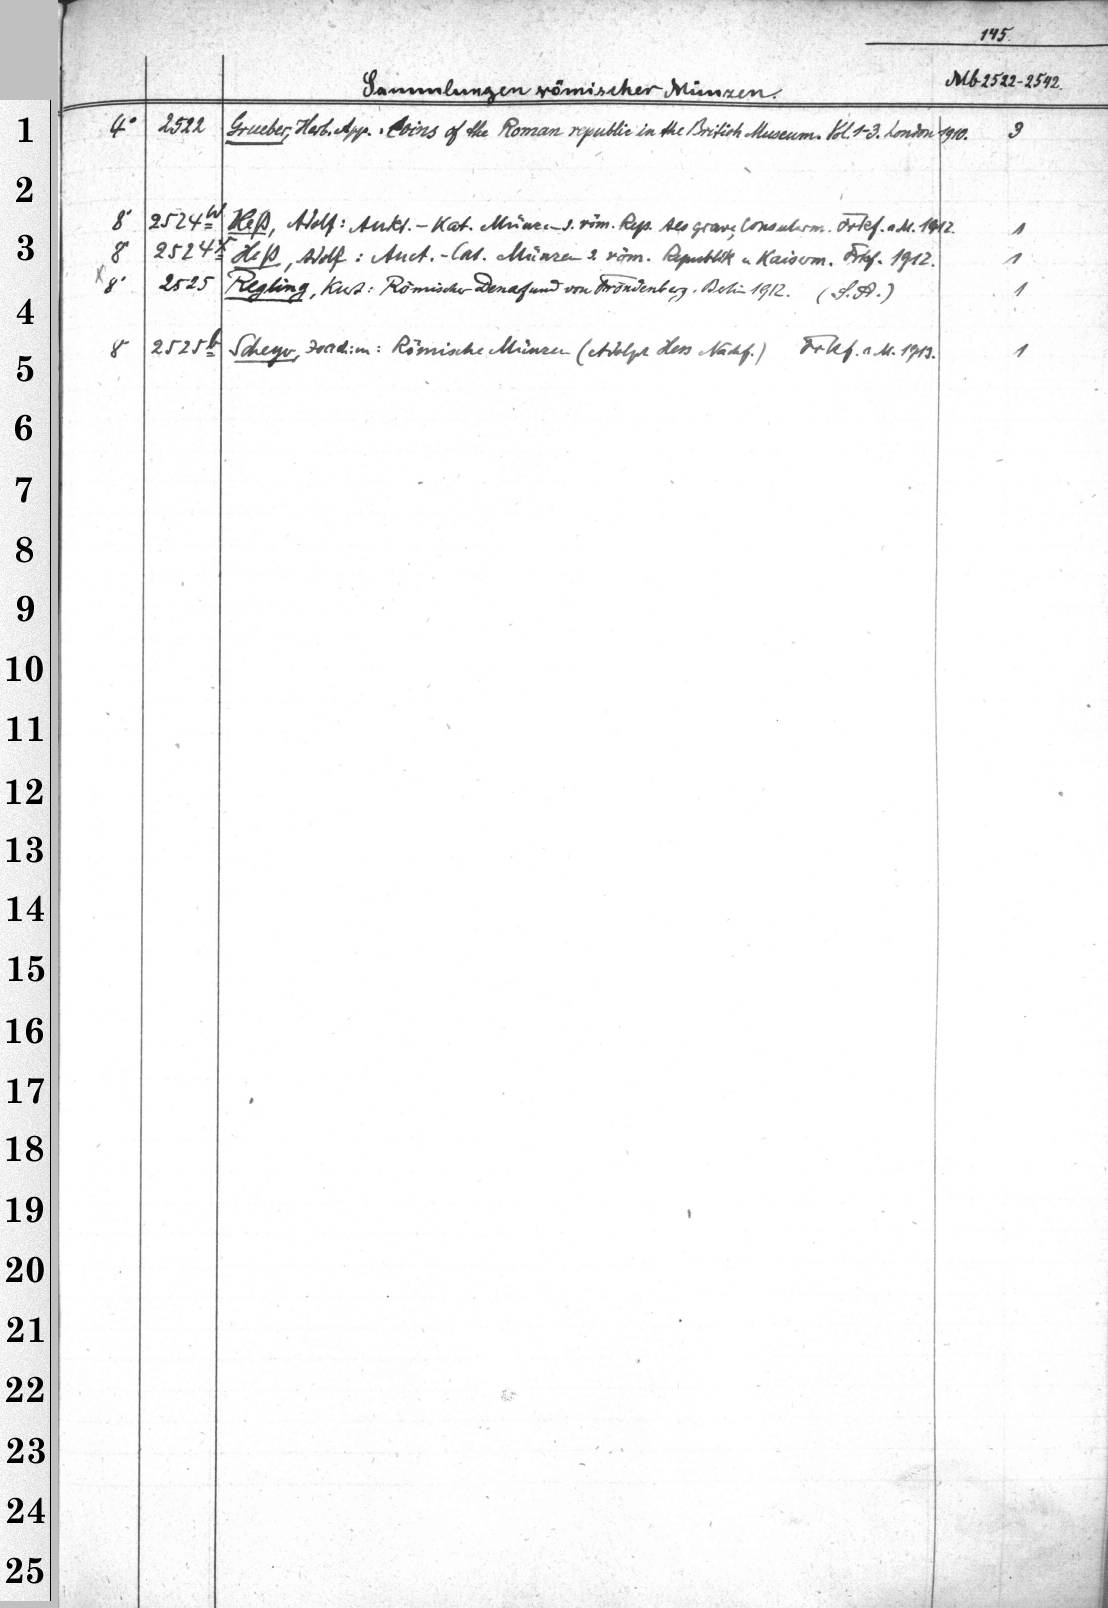 145.
Sammlungen römischer Münzen. Mb 2522-2542.
1 4° 2522 Grueber, Herb. App. Coins of the Roman republic in the British Museum. Vol. 1-3. London 1910. 3
2
8° 2524w Heß, Adolf: Aukt.-Kat. Münzen d. röm. Rep. Aes grave, Consularm. Frkf. a M. 1912. 1
3 8° 2524x Heß, Adolf: Auct.-Cat. Münzen d. röm. Republik u Kaiserm. Frkf. 1912. 1
x 8° 2525 Regling, Kurt: Römischer Denarfund von Fröndenberg. Berlin 1912. (S.A.) 1
4
8° 2525b Scheyer, Joachim: Römische Münzen (Adolph Hess Nachf.) Frkf. a M. 1913. 1
5
6
7
8
9
10
11
12
13
14
15
16
17
18
19
20
21
22
23
24
25